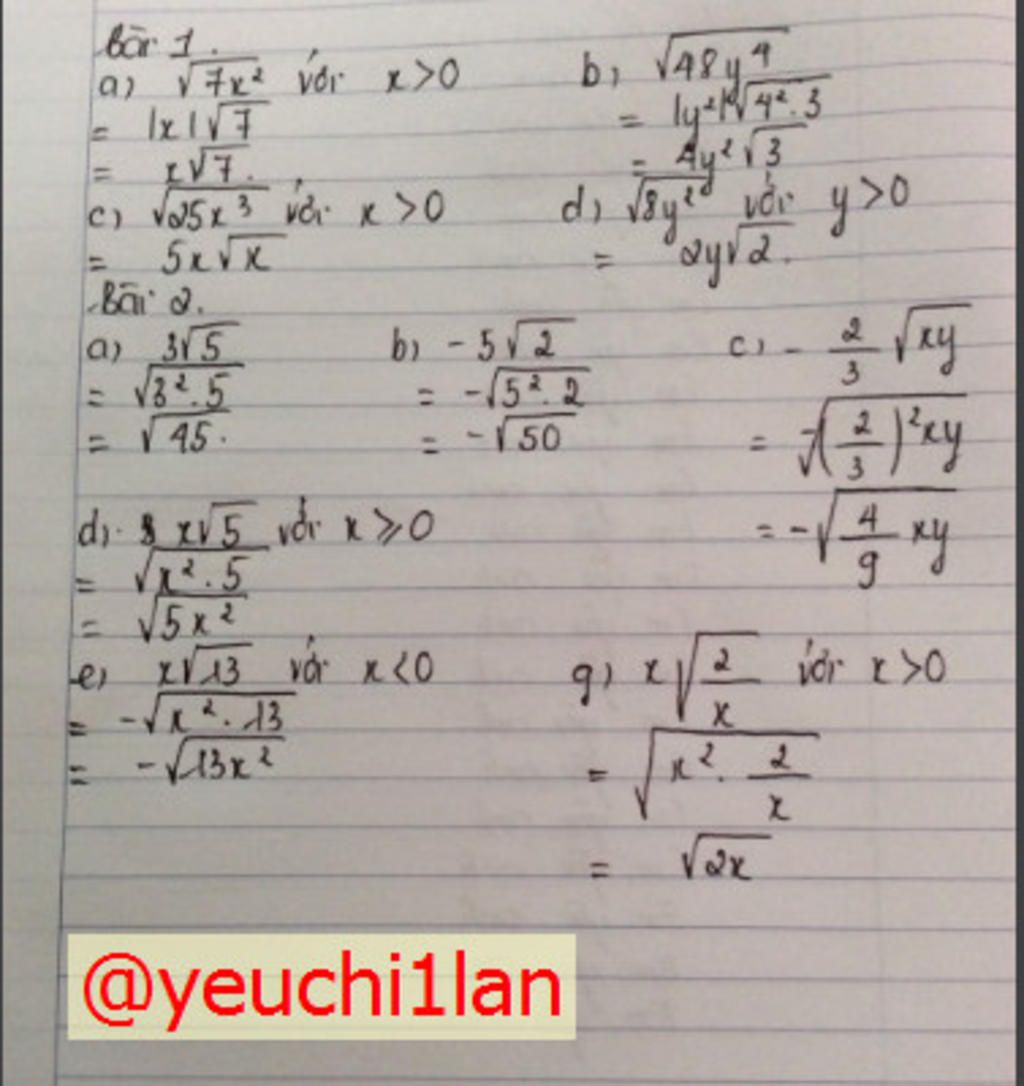 Bài 1.
a) √7x² với x>0
= |x|√7
= x√7.
b) √48y⁴
= |y²|√4².3
= 4y²√3
c) √25x³ với x>0
= 5x√x
d) √8y² với y>0
= 2y√2.
Bài 2.
a) 3√5
= √3².5
= √45.
b) -5√2
= -√5².2
= -√50
c) - 2/3 √xy
= -√(2/3)²xy
= -√4/9 xy
d) x√5 với x⩾0
= √x².5
= √5x²
e) x√13 với x<0
= -√x².13
= -√13x²
g) x√2/x với x>0
= √x². 2/x
= √2x
@yeuchi1lan